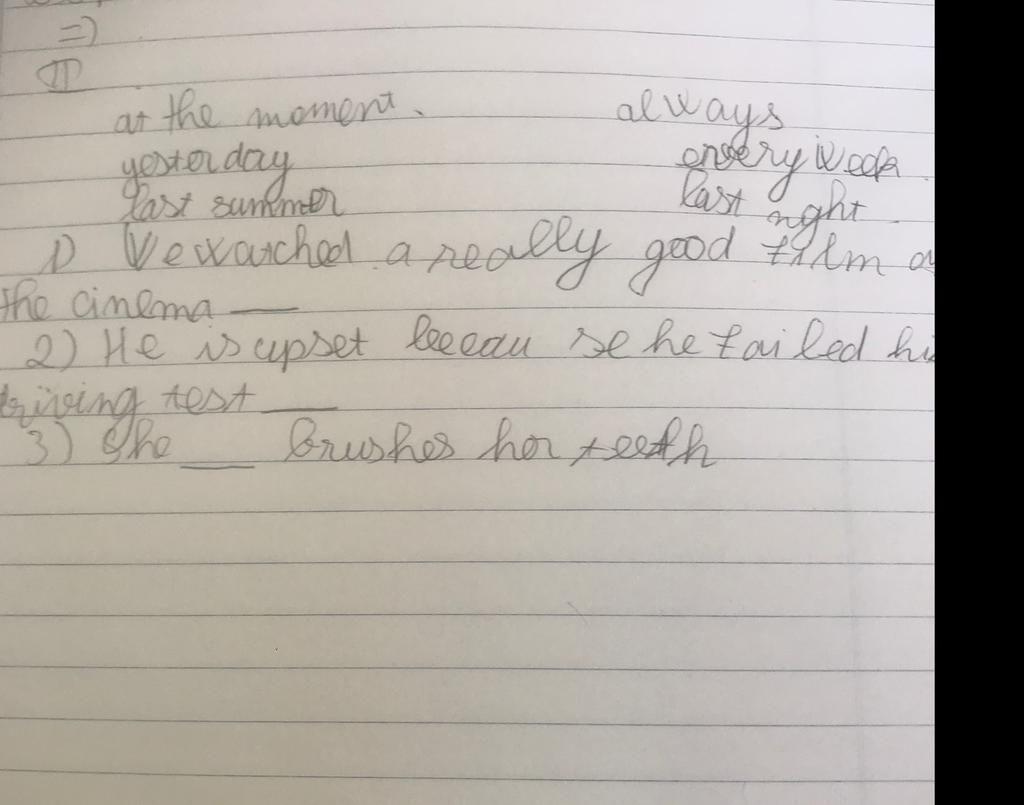 =)
II
at the moment. always
yesterday every week
last summer last night
1) We watched a really good film a
the cinema __
2) He is upset because he failed hi
driving test __
3) She __ brushes her teeth